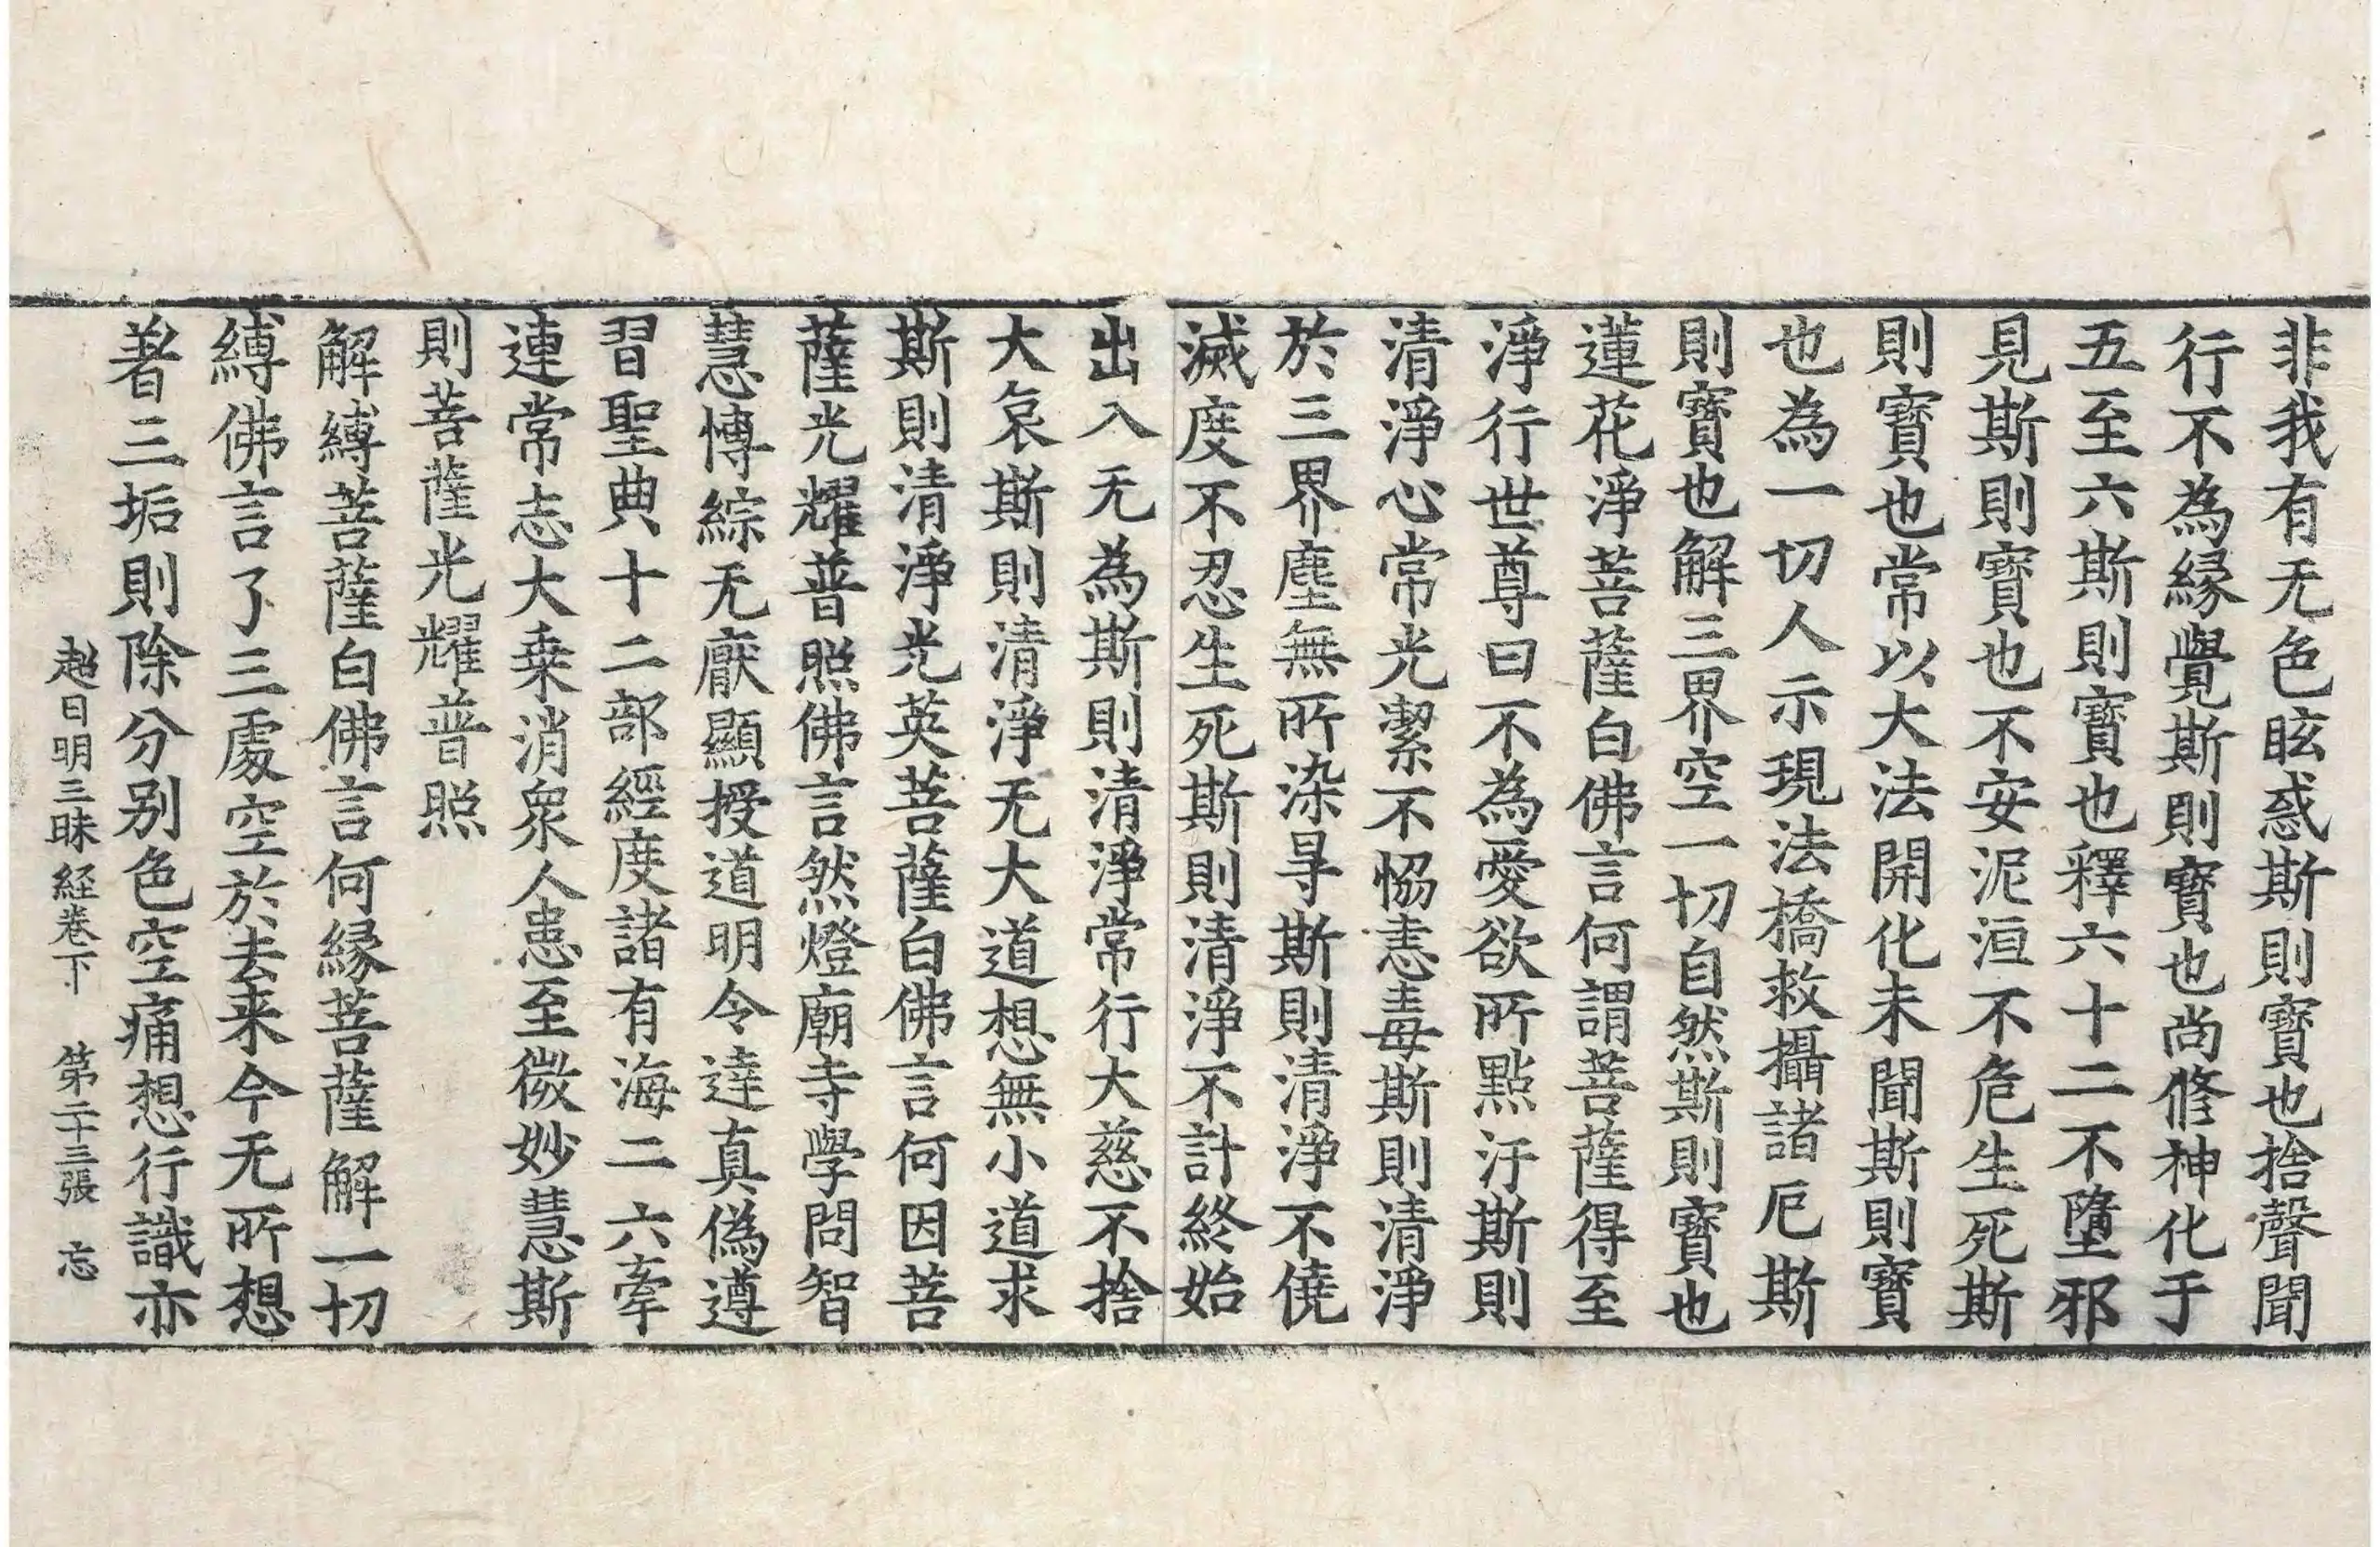 非我有无色眩惑斯則寶也捨聲聞
行不為縁覺斯則寶也尚修神化于
五至六斯則寶也釋六十二不墮邪
見斯則寶也不安泥洹不危生死斯
則寶也常以大法開化未聞斯則寶
也為一切人示現法橋救攝諸厄斯
則寶也解三界空一切自然斯則寶也
蓮花淨菩薩白佛言何謂菩薩得至
淨行世尊曰不為愛欲所點汙斯則
清淨心常光潔不恊恚毒斯則清淨
於三界塵無所染㝵斯則清淨不僥
滅度不忍生死斯則清淨不計終始
出入无為斯則清淨常行大慈不捨
大哀斯則清淨无大道想無小道求
斯則清淨光英菩薩白佛言何因菩
薩光耀普照佛言然燈廟寺學問智
慧愽綜无厭顯授道明令達真偽遵
習聖典十二部經度諸有海二六牽
連常志大乗消衆人患至微妙慧斯
則菩薩光耀普照
解縛菩薩白佛言何縁菩薩解一切
縛佛言了三處空於去来今无所想
著三垢則除分别色空痛想行識亦
超日明三昧経卷下　第二十三張　忘